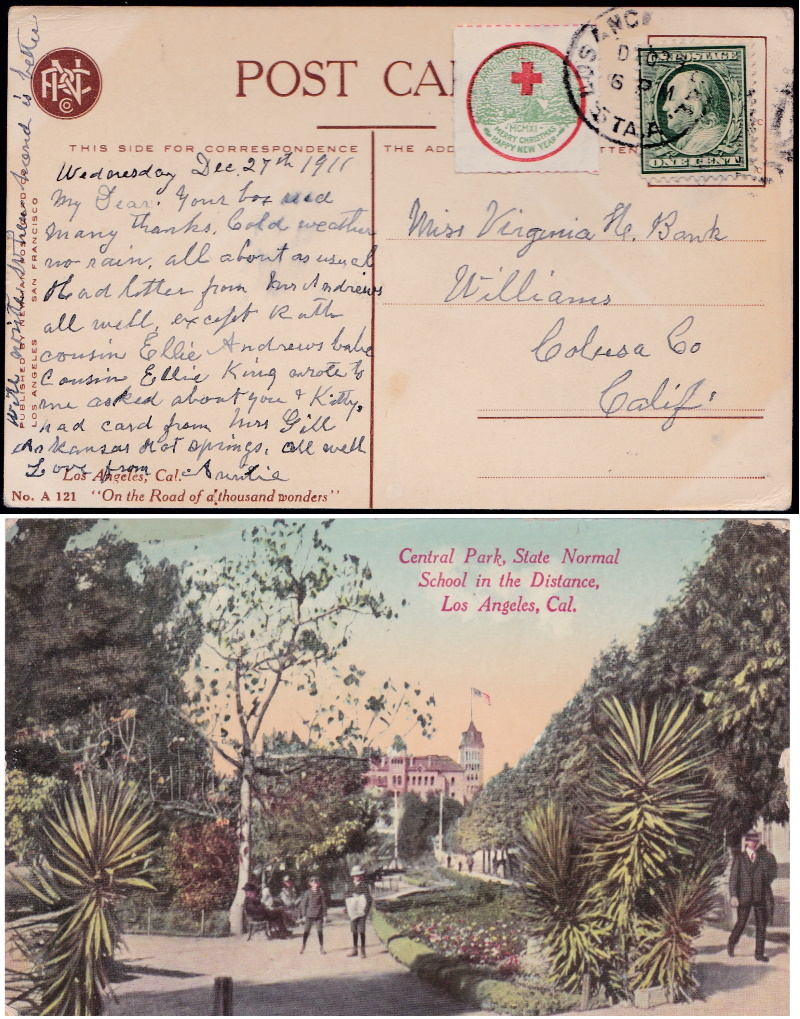 POST CA
AMERICAN RED CROSS
MCMXI
MERRY CHRISTMAS
HAPPY NEW YEAR
LOS ANG
6 P
STA. A
U.S. POSTAGE
ONE CENT
THIS SIDE FOR CORRESPONDENCE
THE ADD
TEN
Wednesday Dec. 27th 1911
My Dear. Your box recd
many thanks. Cold weather
no rain, all about as usual
Had letter from Mrs Andrews
all well, except Ruth
cousin Ellie Andrews babe
Cousin Ellie King wrote to
me asked about you & Kitty,
had card from Mrs Gill
Arkansas Hot Springs, all well
Love from Auntie
Will write when hand is better
PUBLISHED BY
LOS ANGELES SAN FRANCISCO
Miss Virginia H. Bank
Williams
Colusa Co
Calif.
Los Angeles, Cal.
No. A 121 "On the Road of a thousand wonders"
Central Park, State Normal
School in the Distance,
Los Angeles, Cal.